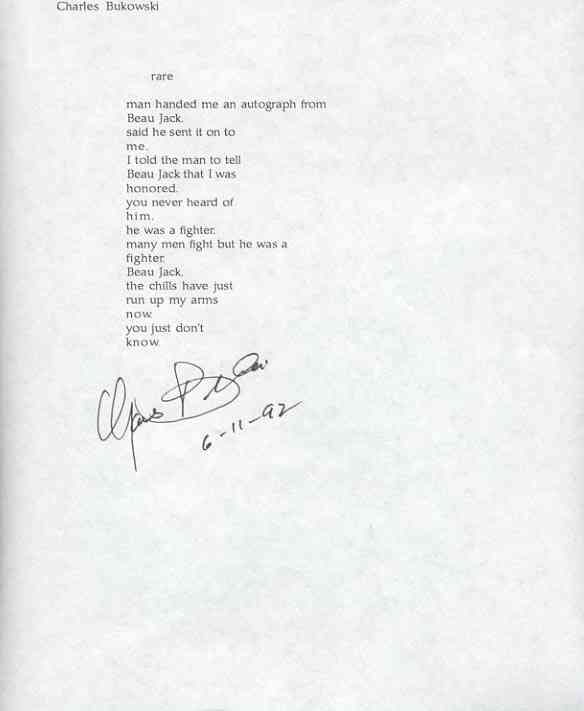 Charles Bukowski
rare
man handed me an autograph from
Beau Jack.
said he sent it on to
me.
I told the man to tell
Beau Jack that I was
honored.
you never heard of
him.
he was a fighter.
many men fight but he was a
fighter.
Beau Jack.
the chills have just
run up my arms
now.
you just don't
know.
6-11-92